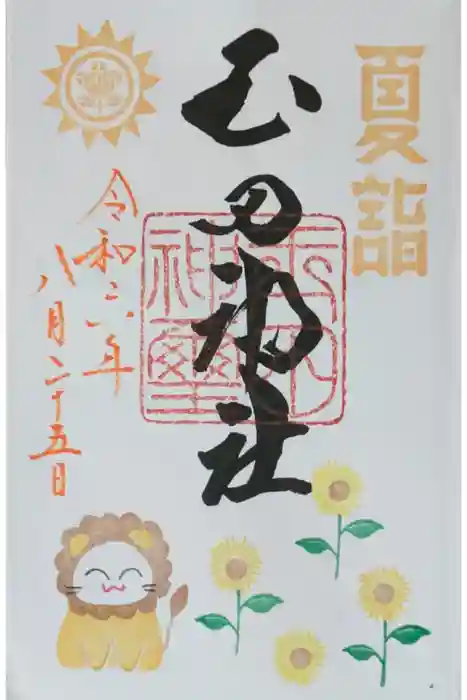 夏詣
玉田神社
令和六年
八月二十五日